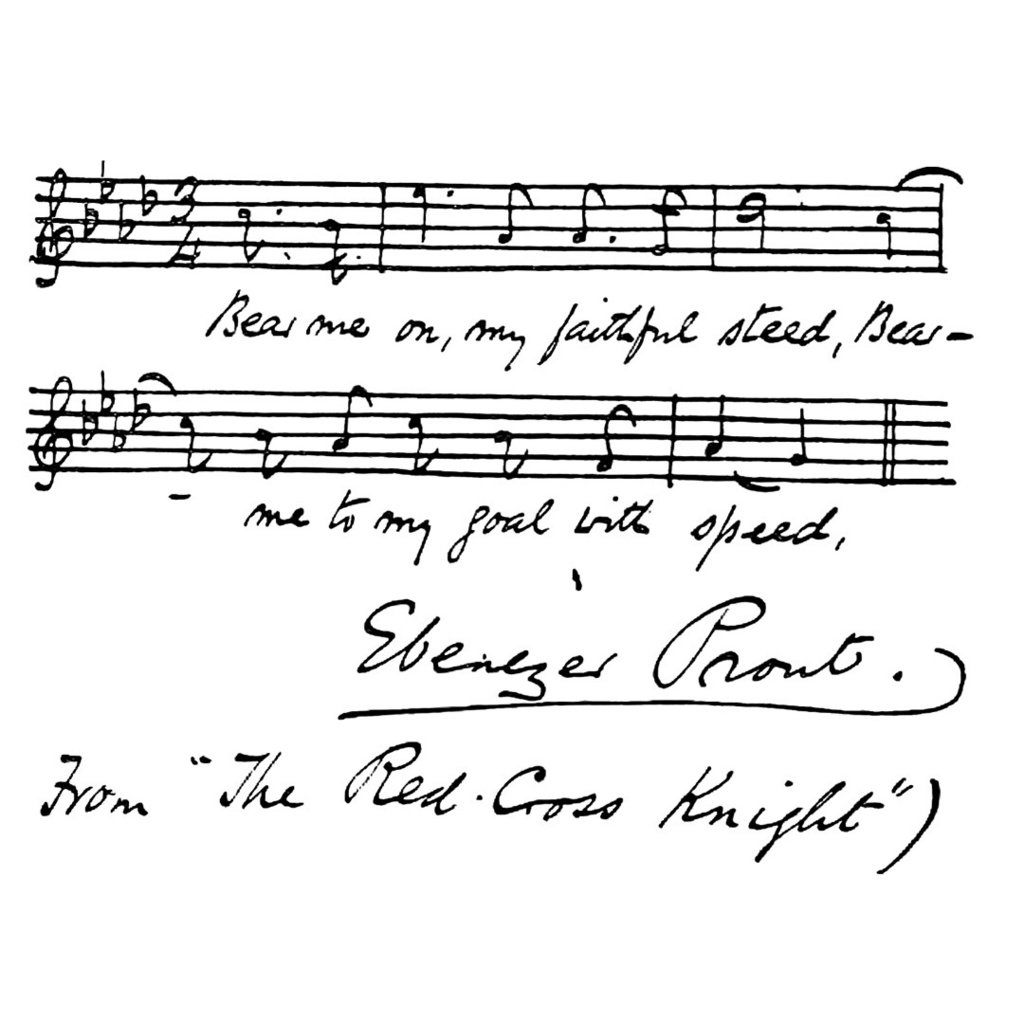 Bear me on, my faithful steed, Bear-
- me to my goal with speed,
Ebenezer Prout.
From "The Red-Cross Knight")